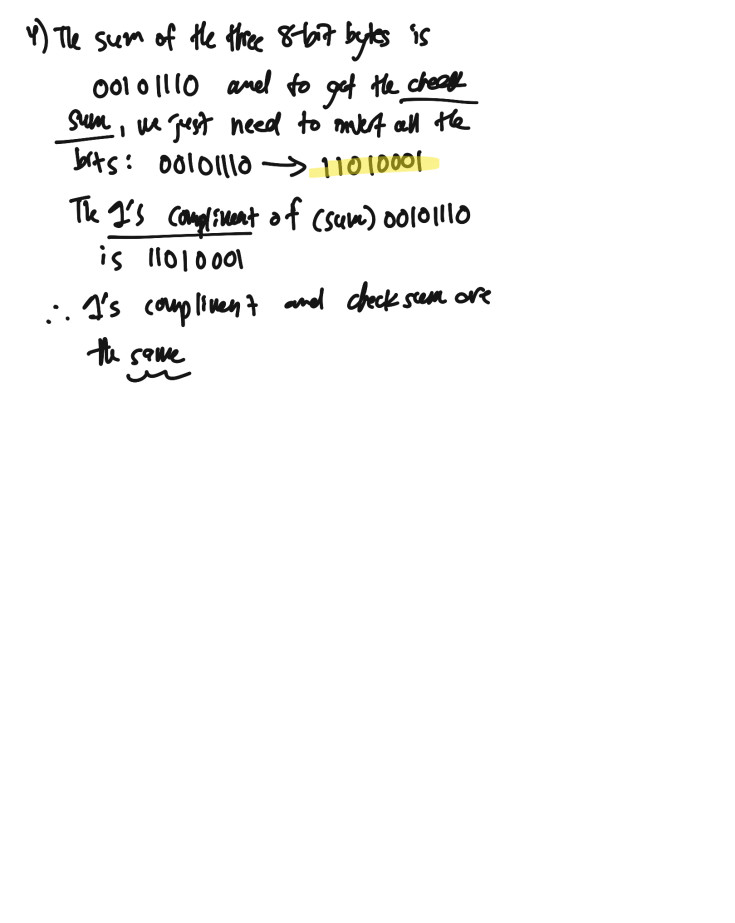 4) The sum of the three 8-bit bytes is
00101110 and to get the check
sum, we just need to invert all the
bits: 00101110 → 11010001
The 1's compliment of (sum) 00101110
is 11010001
∴ 1's compliment and checksum are
the same